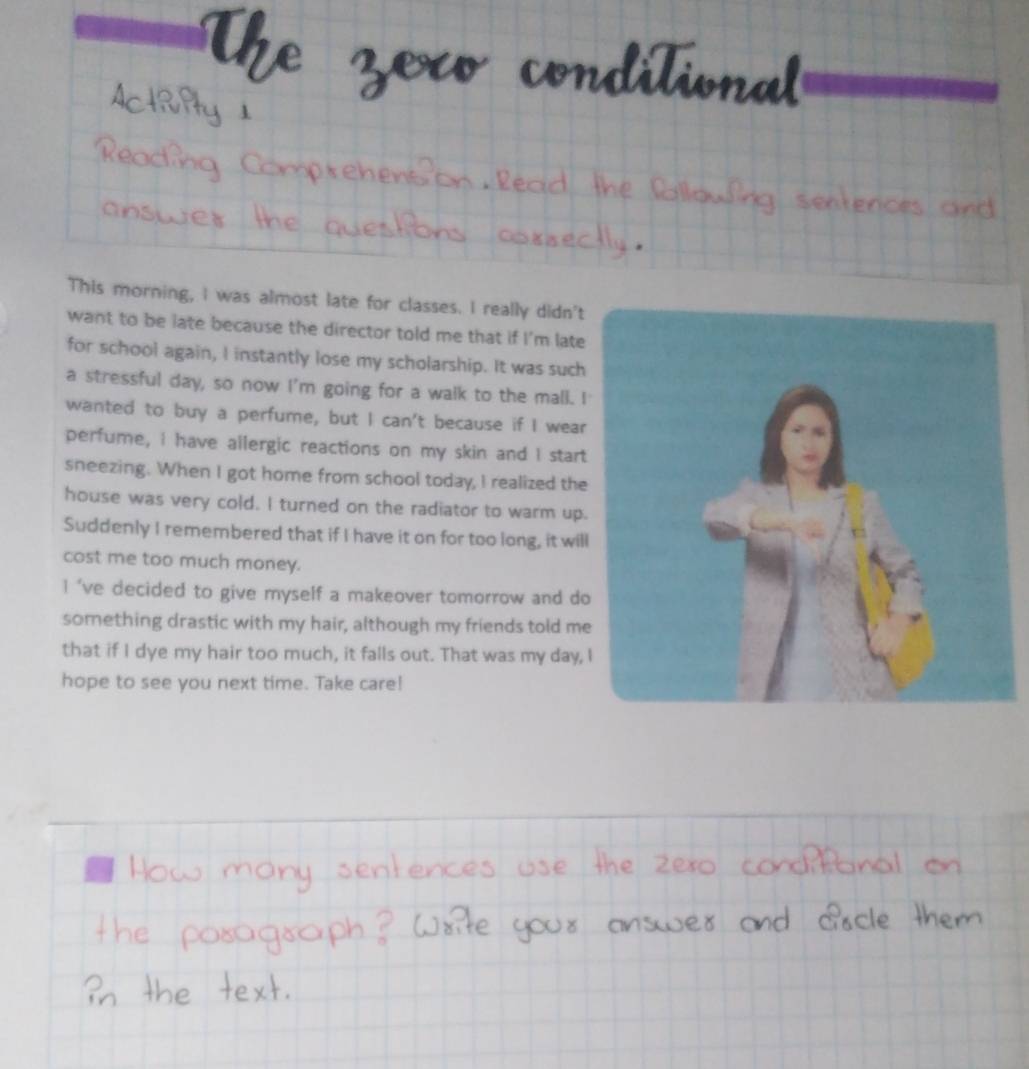 The zero conditional
Activity 1
Reading Comprehension. Read the following sentences and
answer the questions correctly.
This morning, I was almost late for classes. I really didn't
want to be late because the director told me that if I'm late
for school again, I instantly lose my scholarship. It was such
a stressful day, so now I'm going for a walk to the mall. I
wanted to buy a perfume, but I can't because if I wear
perfume, I have allergic reactions on my skin and I start
sneezing. When I got home from school today, I realized the
house was very cold. I turned on the radiator to warm up.
Suddenly I remembered that if I have it on for too long, it will
cost me too much money.
I 've decided to give myself a makeover tomorrow and do
something drastic with my hair, although my friends told me
that if I dye my hair too much, it falls out. That was my day, I
hope to see you next time. Take care!
How many sentences use the zero conditional on
the paragraph? Write your answer and circle them
in the text.